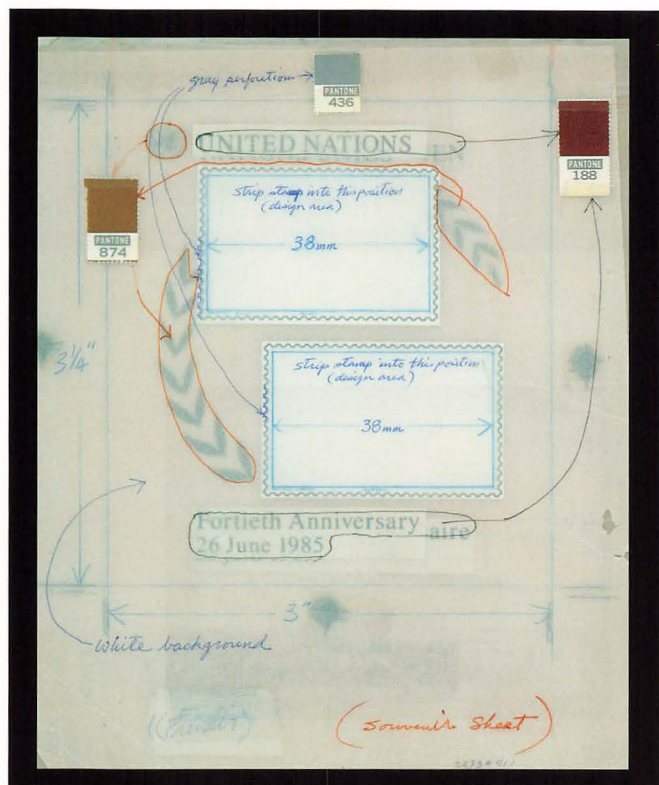 gray perforations
PANTONE
436
UNITED NATIONS
EN
PANTONE
188
PANTONE
874
strip stamp into this position
(design area)
38mm
3 1/4"
strip stamp into this position
(design area)
38mm
Fortieth Anniversary
aire
26 June 1985
3"
white background
(French)
(Souvenir Sheet)